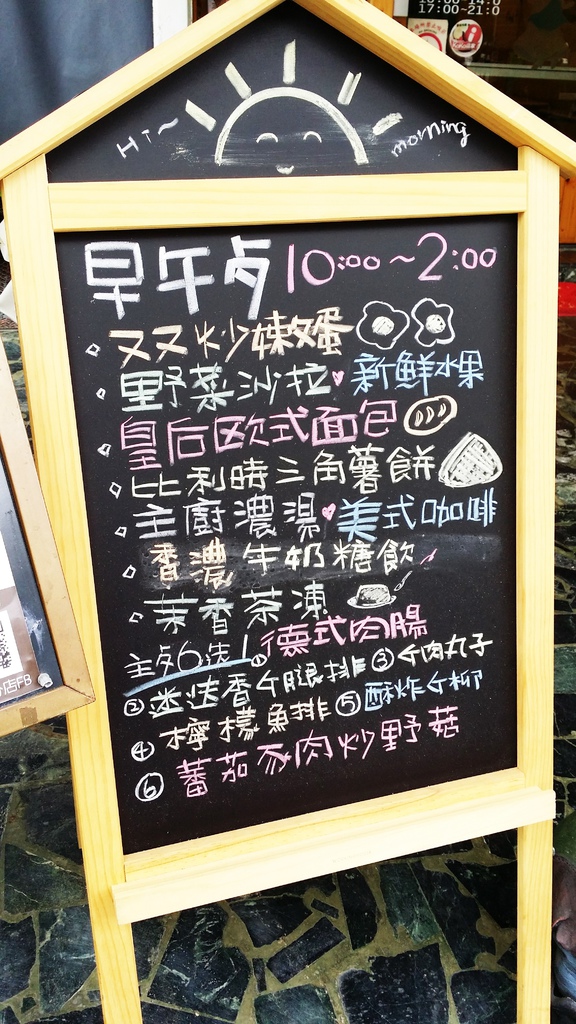 17:00~21:0
Hi~ morning
早午歺 10:00~2:00
双双炒嫩蛋
野菜沙拉 新鮮水果
皇后欧式面包
比利時三角薯餅
主廚濃湯 美式咖啡
香濃牛奶糖飲
茉香茶凍
主歺6選1 ①德式肉腸
②迷迭香介腿排 ③介肉丸子
④檸檬魚排 ⑤酥炸介柳
⑥蕃茄豕肉炒野菇
店FB